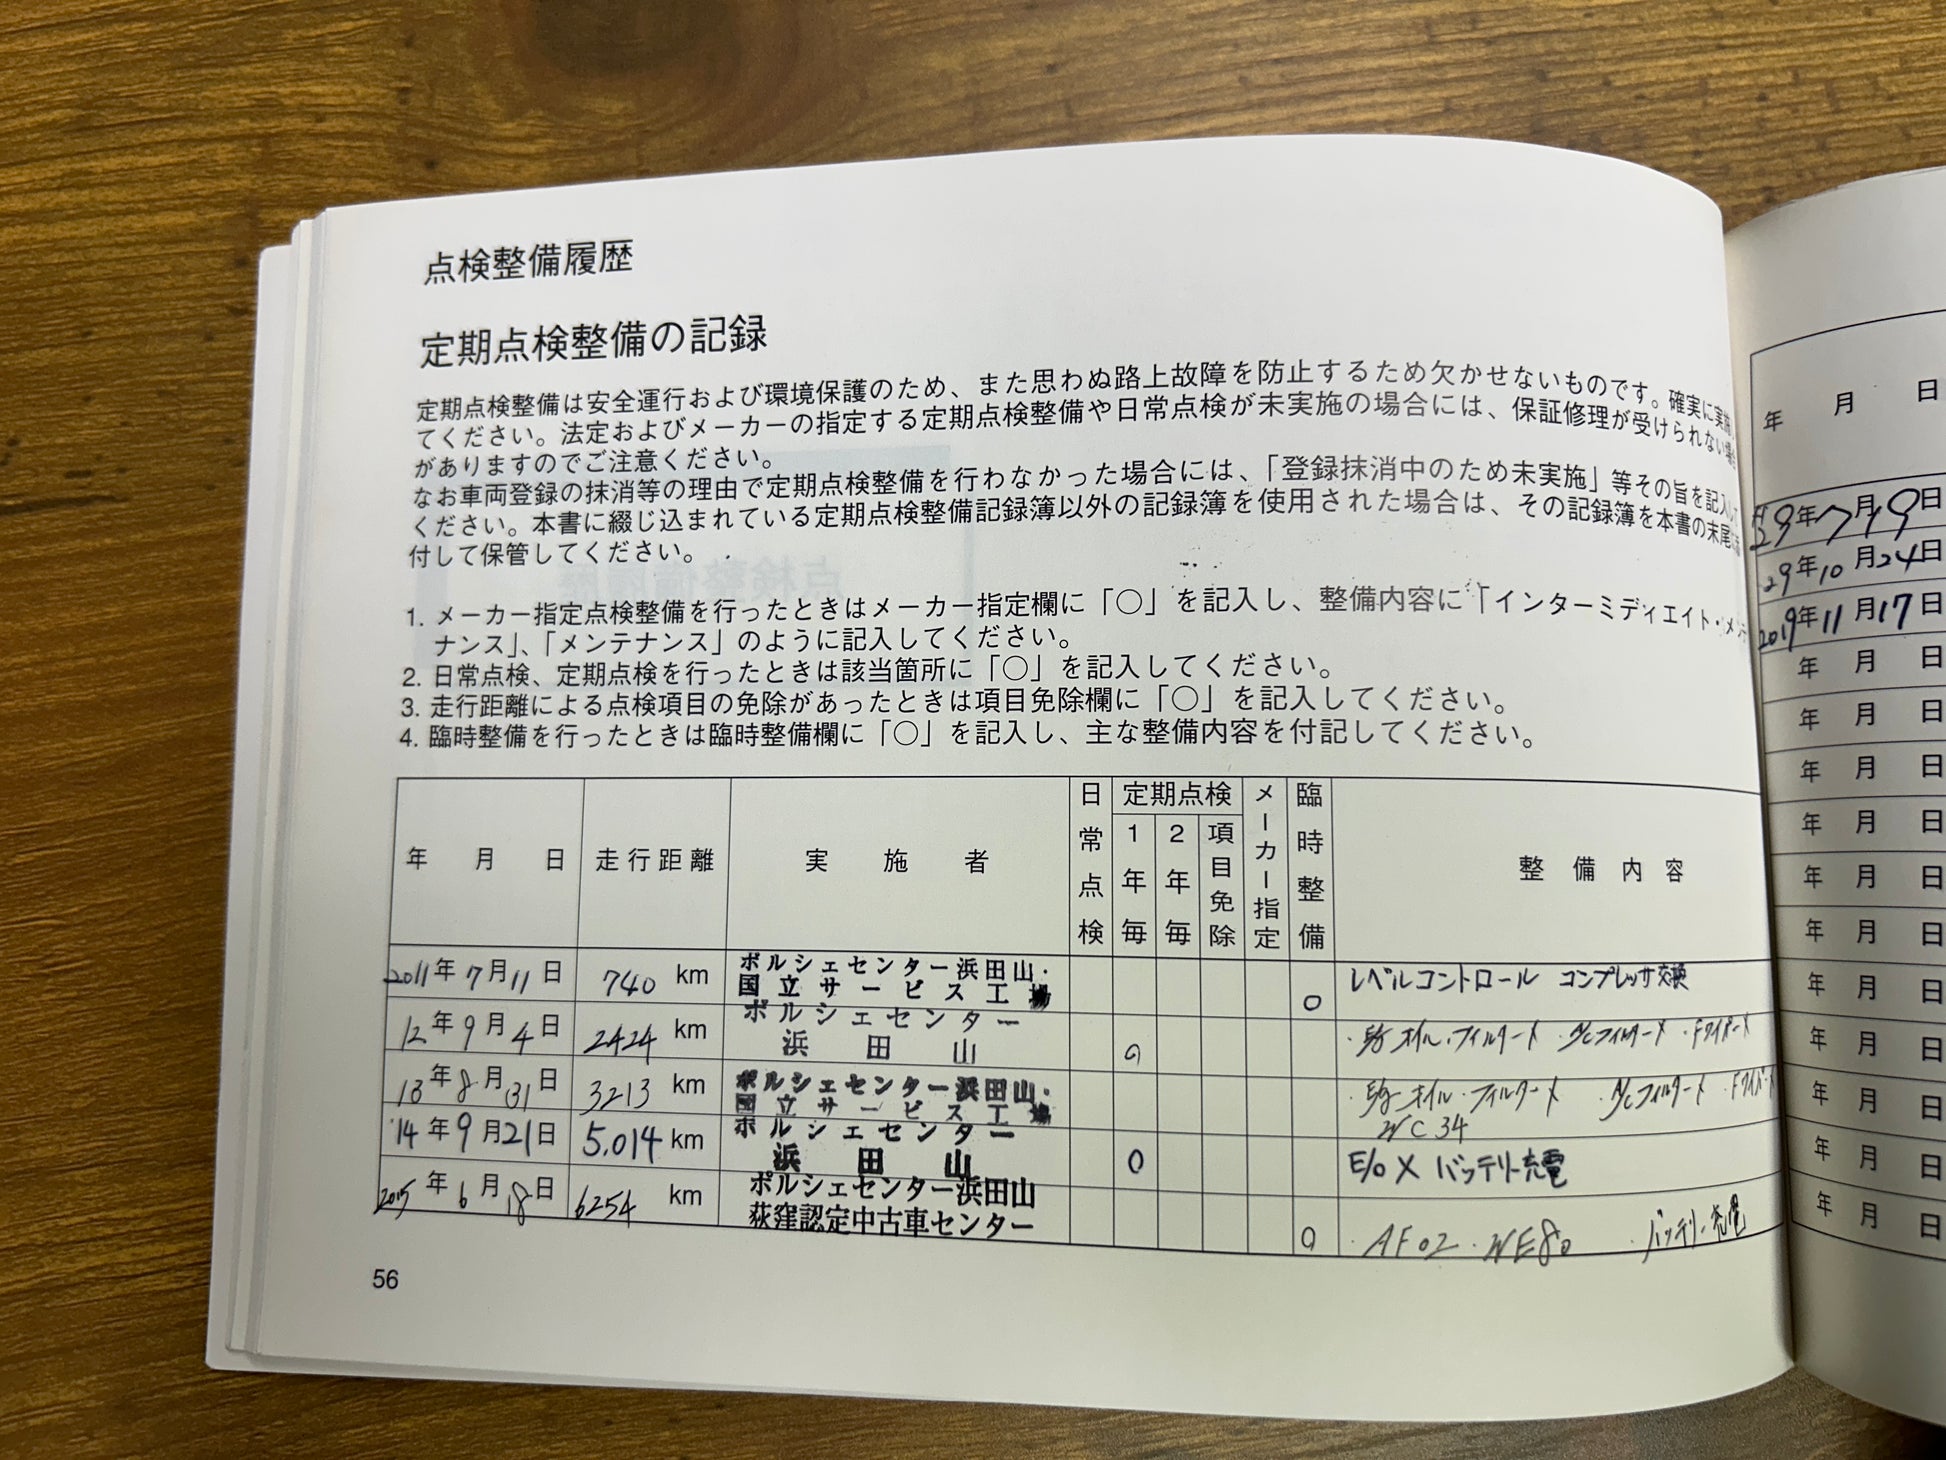 点検整備履歴
定期点検整備の記録
定期点検整備は安全運行および環境保護のため、また思わぬ路上故障を防止するため欠かせないものです。確実に実施
てください。法定およびメーカーの指定する定期点検整備や日常点検が未実施の場合には、保証修理が受けられない場合
がありますのでご注意ください。
なお車両登録の抹消等の理由で定期点検整備を行わなかった場合には、「登録抹消中のため未実施」等その旨を記入して
ください。本書に綴じ込まれている定期点検整備記録簿以外の記録簿を使用された場合は、その記録簿を本書の末尾に
付して保管してください。
1. メーカー指定点検整備を行ったときはメーカー指定欄に「○」を記入し、整備内容に「インターミディエイト・メンテ
ナンス」、「メンテナンス」のように記入してください。
2. 日常点検、定期点検を行ったときは該当箇所に「○」を記入してください。
3. 走行距離による点検項目の免除があったときは項目免除欄に「○」を記入してください。
4. 臨時整備を行ったときは臨時整備欄に「○」を記入し、主な整備内容を付記してください。
年 月 日 走行距離 実施者 日常点検 定期点検 1年毎 2年毎 項目免除 メーカー指定 臨時整備 整備内容
2011年7月11日 740 km ポルシェセンター浜田山・
国立サービス工場 ○ レベルコントロール コンプレッサ交換
12年9月4日 2424 km ポルシェセンター
浜田山 ○ オイル・フィルター フィルター
13年8月31日 3213 km ポルシェセンター浜田山・
国立サービス工場 オイル・フィルター フィルター
WC34
'14年9月21日 5,014 km ポルシェセンター
浜田山 ○ E/O X バッテリー充電
2015年6月18日 6254 km ポルシェセンター浜田山
荻窪認定中古車センター ○ ・AF02・WE80 ・バッテリー充電
56
年 月 日
29年7月19日
29年10月24日
2019年11月17日
年 月 日
年 月 日
年 月 日
年 月 日
年 月 日
年 月 日
年 月 日
年 月 日
年 月 日
年 月 日
年 月 日